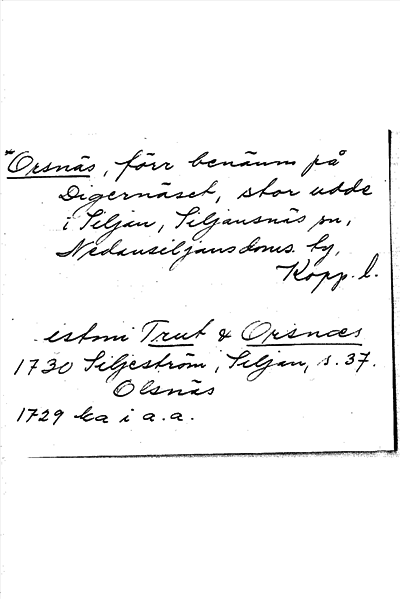 *Orsnäs, förr benämn på
Digernäset, stor udde
i Siljan, Siljansnäs sn,
Nedansiljans doms. by,
Kopp. l.
istmi Trut & Orsnæs
1730 Siljeström, Siljan, s. 37.
Olsnäs
1729 ka i a.a.